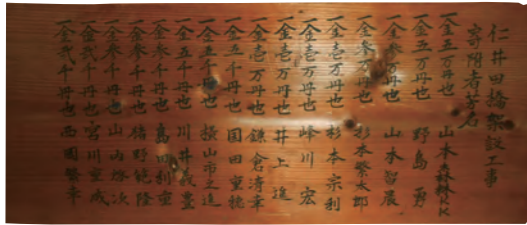 仁井田橋架設工事
寄附者芳名
一金五万円也 山本森林KK
一金五万円也 野島 勇
一金参万円也 山本智晨
一金参万円也 杉本繁太郎
一金壱万円也 杉本宗利
一金壱万円也 峰川 宏
一金壱万円也 井上 進
一金壱万円也 鎌倉清幸
一金五千円也 国田重穂
一金五千円也 横山市之進
一金五千円也 川井義豊
一金参千円也 島田利重
一金参千円也 猪野範隆
一金参千円也 山内啓次
一金弐千円也 宮川重成
一金弐千円也 西岡繁幸